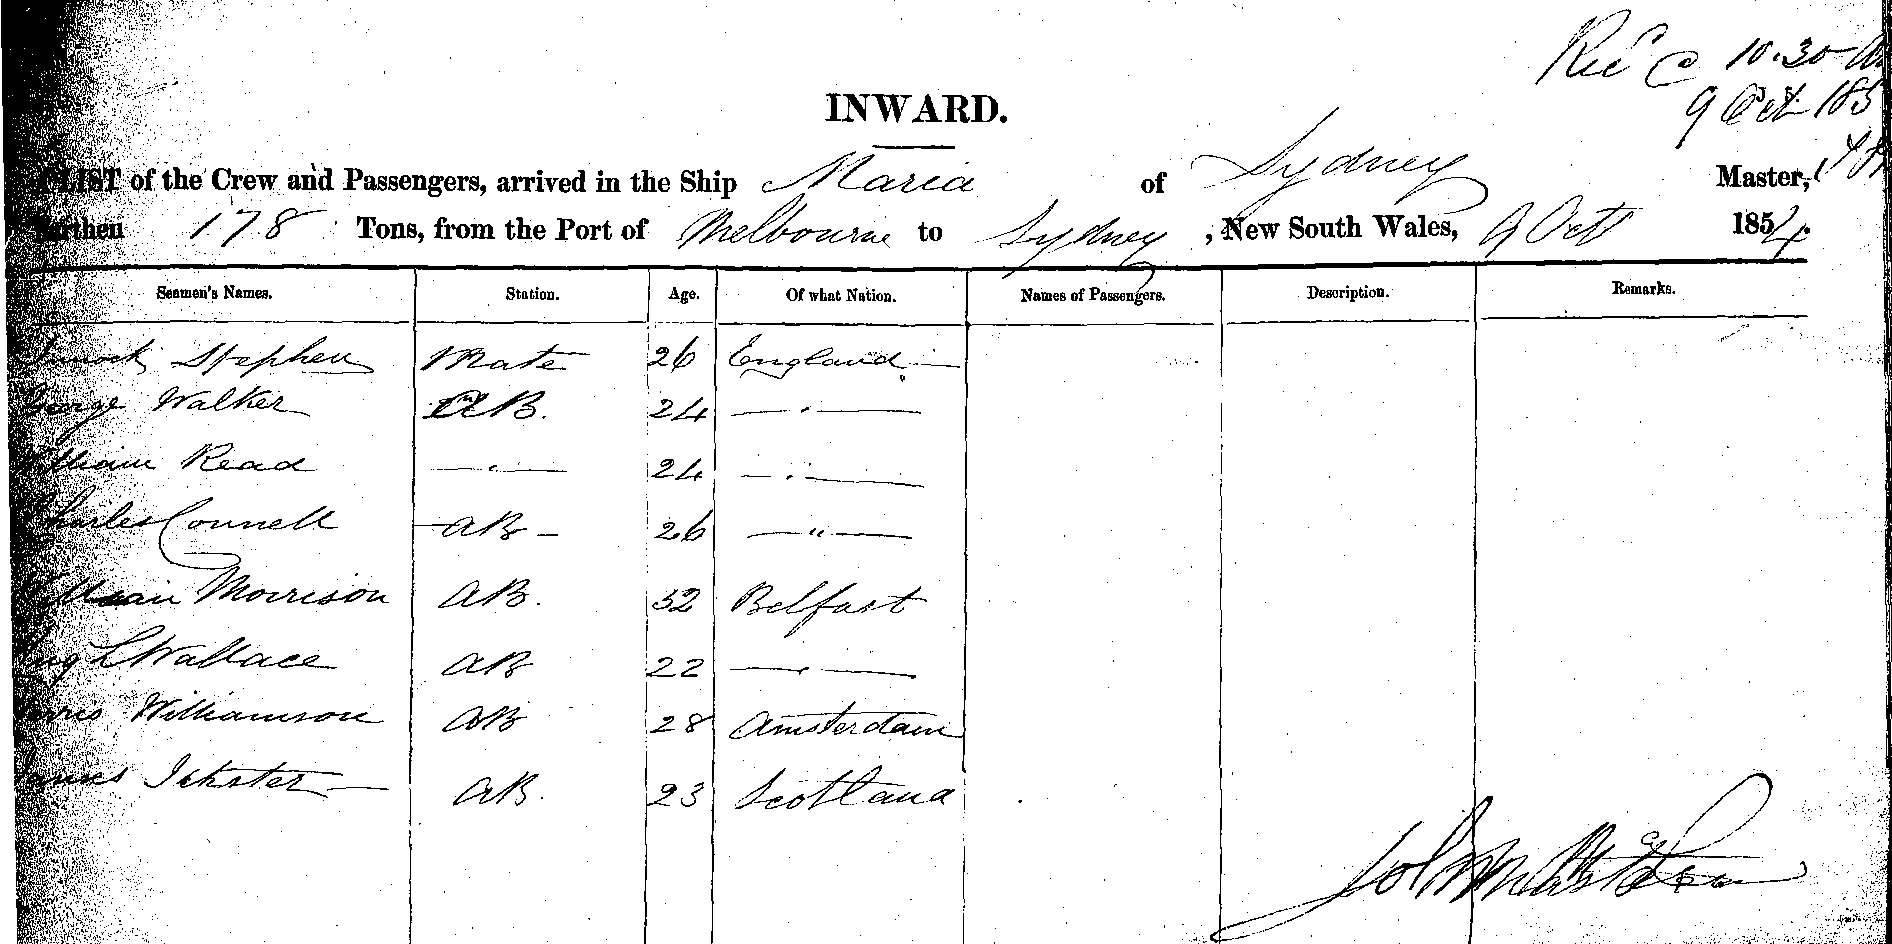 Recd 10.30
9 Oct 185
INWARD.
LIST of the Crew and Passengers, arrived in the Ship Maria of Sydney Master,
Burthen 178 Tons, from the Port of Melbourne to Sydney, New South Wales, 9 Oct 1854
Seamen's Names. Station. Age. Of what Nation. Names of Passengers. Description. Remarks.
Stephen Mate 26 England —
George Walker AB. 24 — . —
William Read — . — 24 — . —
Charles Connell AB — 26 — " —
William Morrison AB. 32 Belfast
Hugh Wallace AB 22 — . —
Williamson AB 28 Amsterdam
James AB. 23 Scotland
John